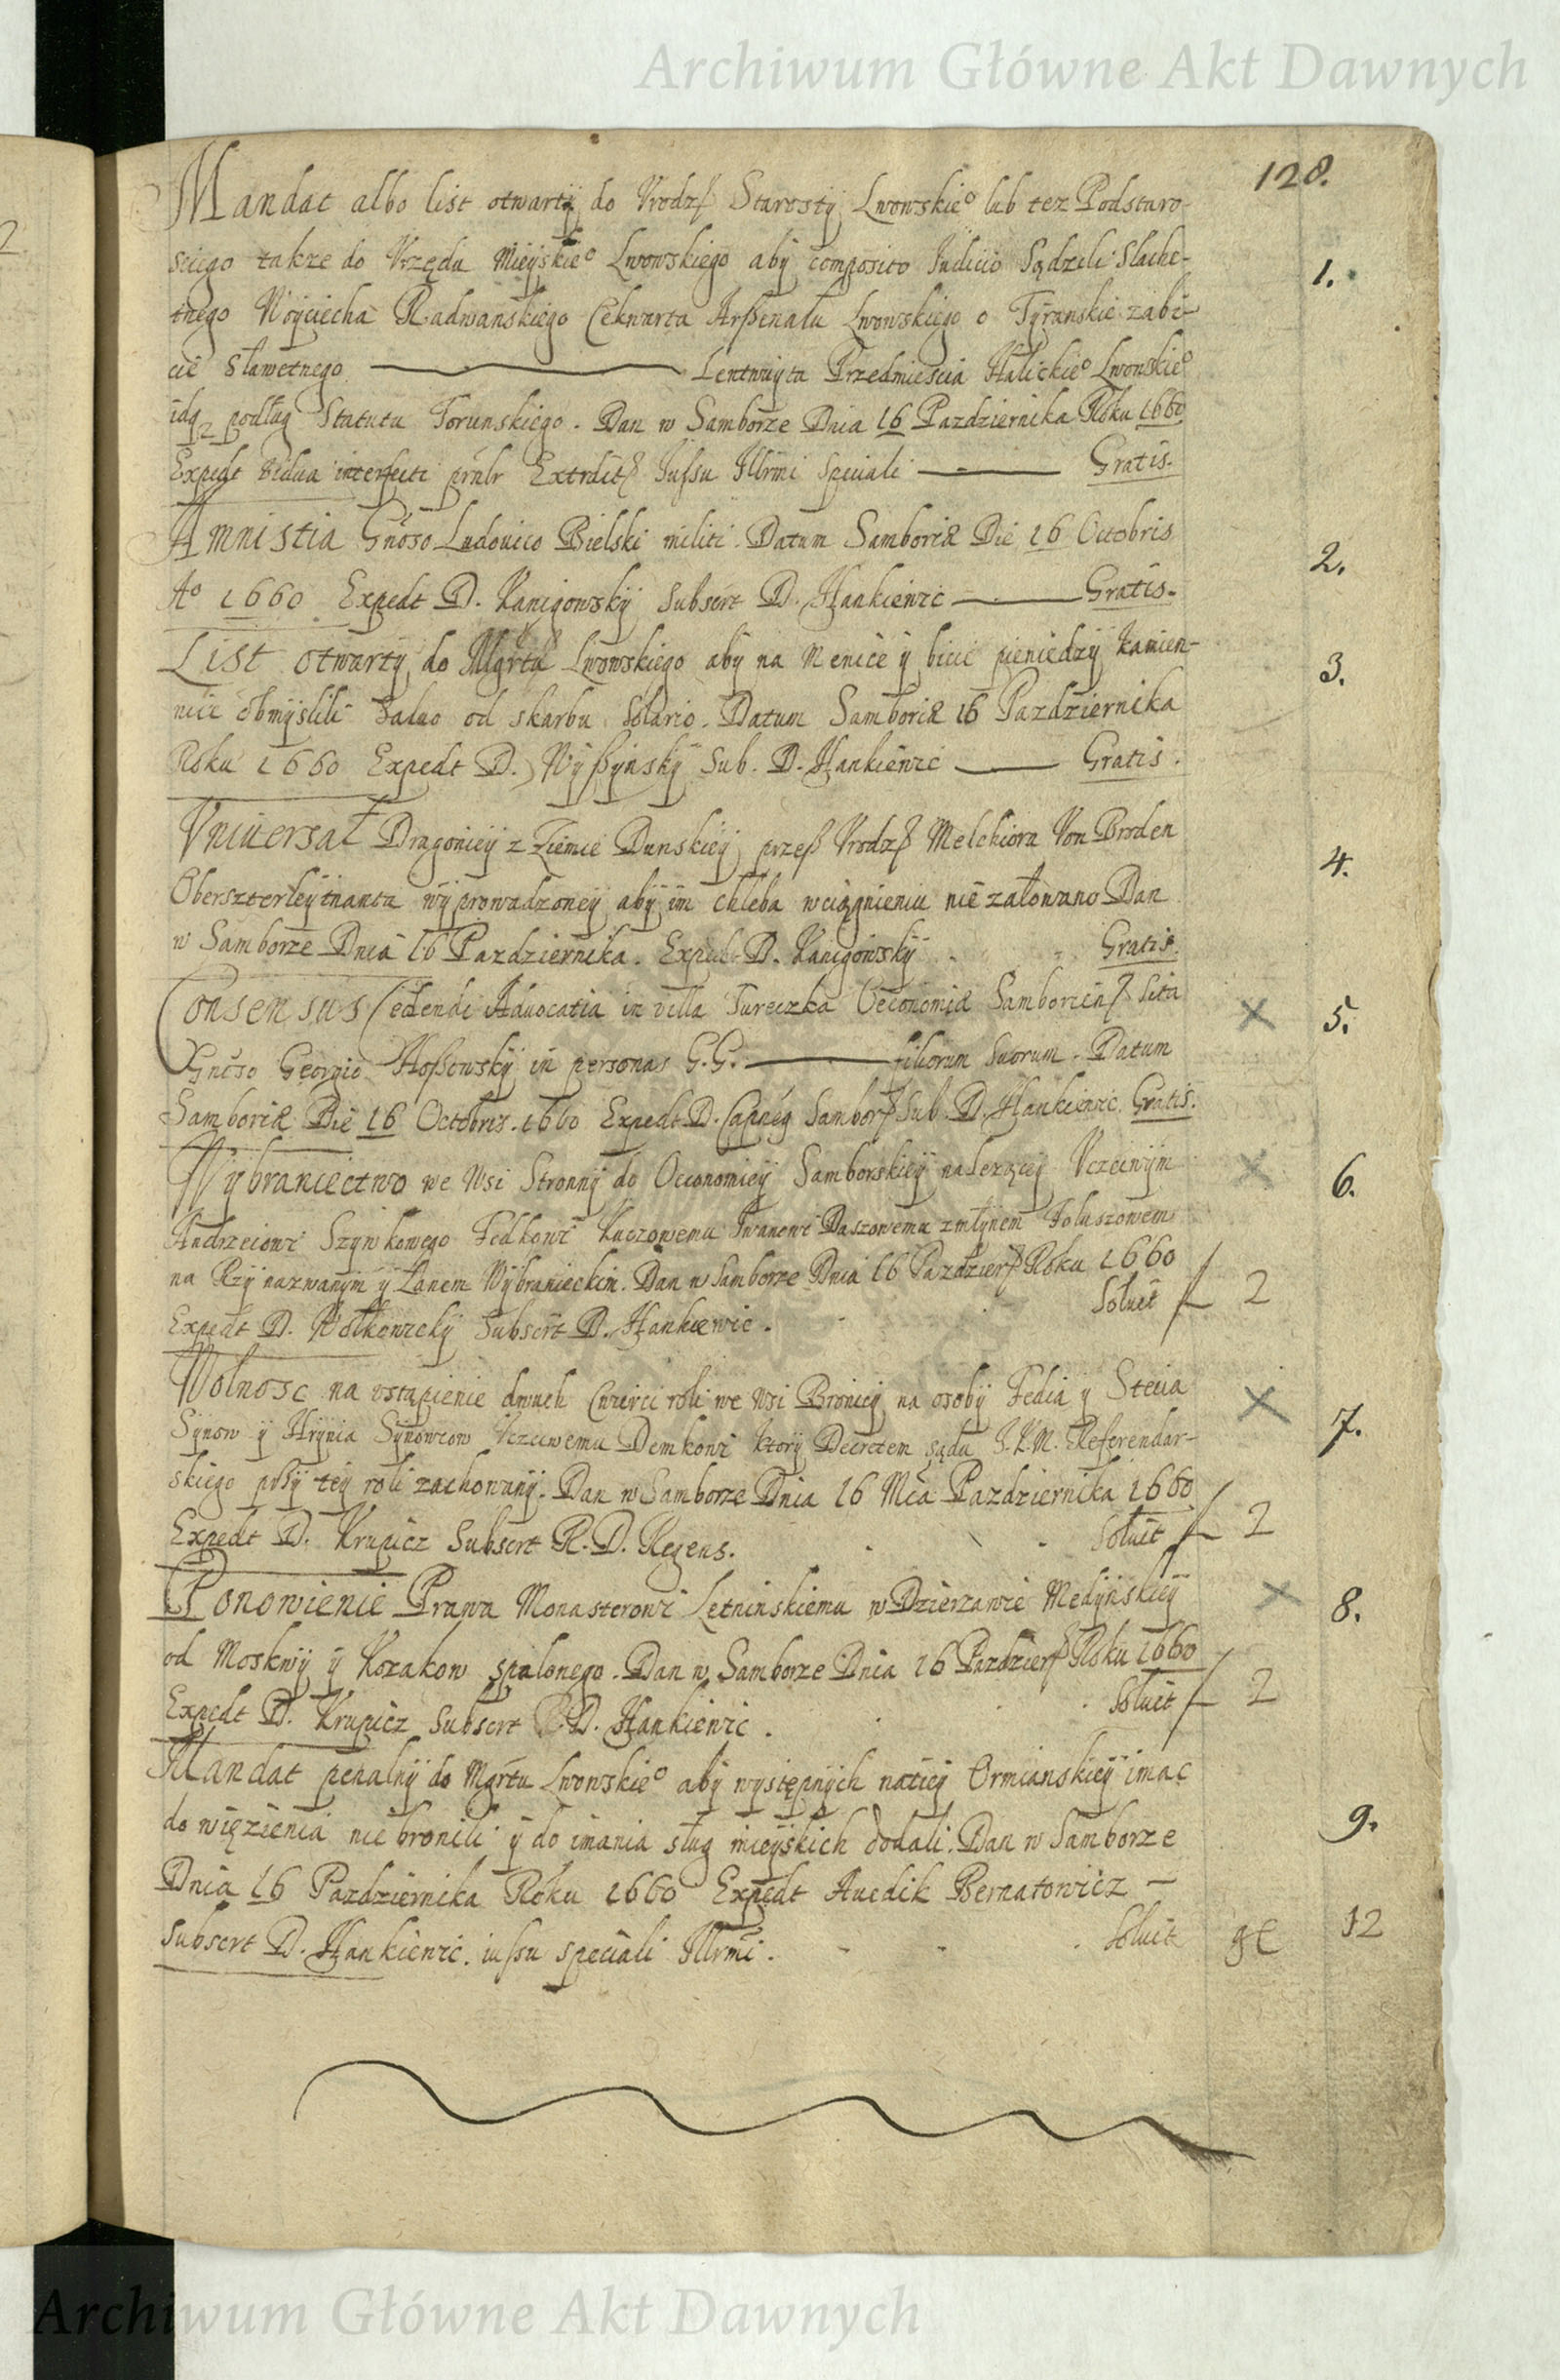 Archiwum Główne Akt Dawnych
128.
Mandat albo list otwarty do Vrodzß Starosty Lwowskieº lub tez Podstaro-
sciego takze do Vrzędu Mieyskieº Lwowskiego aby composito Iudicio Sądzili Slache-
tnego Woyciecha Radwanskiego Cekwarta Arßenału Lwowskiego o Tyranskie zabi-
cie Sławetnego Lentwuyta Przedmiescia Halickieº Lwowskieº
idq podług Statutu Torunskiego. Dan w Samborze Dnia 16 Pazdziernika Roku 1660
Expedt vidua interfecti Extrdit Iussu Illrmi speciali Gratis.
1.
Amnistia Gnoso Ludouico Bielski militi. Datum Samboriæ Die 16 Octobris
Aº 1660 Expedt D. Kanigowsky Subscrt D. Hankiewic Gratis.
2.
List otwarty do Mgrtu Lwowskiego aby na Menice y bicie pieniedzy kamien-
nice obmyslili saluo od skarbu solario. Datum Samboriæ 16 Pazdziernika
Roku 1660 Expedt D. Wyßynsky Sub. D. Hankiewic Gratis.
3.
Vniuersał Dragoniey z Ziemie Dunskiey przeß Vrodzß Melchiora Von Broden
Oberszterleytnanta wyprowadzoney aby im chleba wciągnieniu nie załowano Dan
w Samborze Dnia 16 Pazdziernika. Expedt D. Kanigowsky Gratis.
4.
Consensus Cedendi Aduocatia in villa Tureczka Oeconomiæ Samboricen sita
Gnoso Georgio Hoßowsky in personas G.G. filiorum suorum. Datum
Samboriæ Die 16 Octobris. 1660 Expedt D. Sambor Sub. D. Hankiewic. Gratis.
5.
Wybraniectwo we Wsi Stronny do Oeconomiey Samborskiey nalezącey Vczciwym
Andrzeiowi Szynkowego Fedkowi Kuczowemu Iwanowi Daszowemu z młynem Foluszowem
na Rzy nazwanym y Łanem Wybranieckim. Dan w Samborze Dnia 16 Pazdzier Roku 1660
Expedt D. Wołkowicky Subscrt D. Hankiewic. Soluit f 2
6.
Wolnosc na vstąpienie dwuch Cwierci roli we Wsi Bronicy na osoby Fedia y Stecia
Synow y Hrynia Synowcow Vczciwemu Demkowi ktory Decretem sądu J.K.M. Referendar-
skiego przy tey roli zachowany. Dan w Samborze Dnia 16 Mca Pazdziernika 1660
Expedt D. Krupicz Subscrt R. D. Regens. Soluit f 2
7.
Ponowienie Prawa Monasterowi Letninskiemu w Dzierzawie Medynskiey
od Moskwy y Kozakow spalonego. Dan w Samborze Dnia 16 Pazdzier Roku 1660
Expedt D. Krupicz Subscrt D. Hankiewic. Soluit f 2
8.
Mandat penalny do Mgrtu Lwowskieº aby występnych natiey Ormianskiey imac
do więzienia nie bronili y do imania sług mieyskich dodali. Dan w Samborze
Dnia 16 Pazdziernika Roku 1660 Expedt Auedik Bernatowicz
subscrt D. Hankiewic. iussu speciali Illrmi. Soluit 12
9.
Archiwum Główne Akt Dawnych